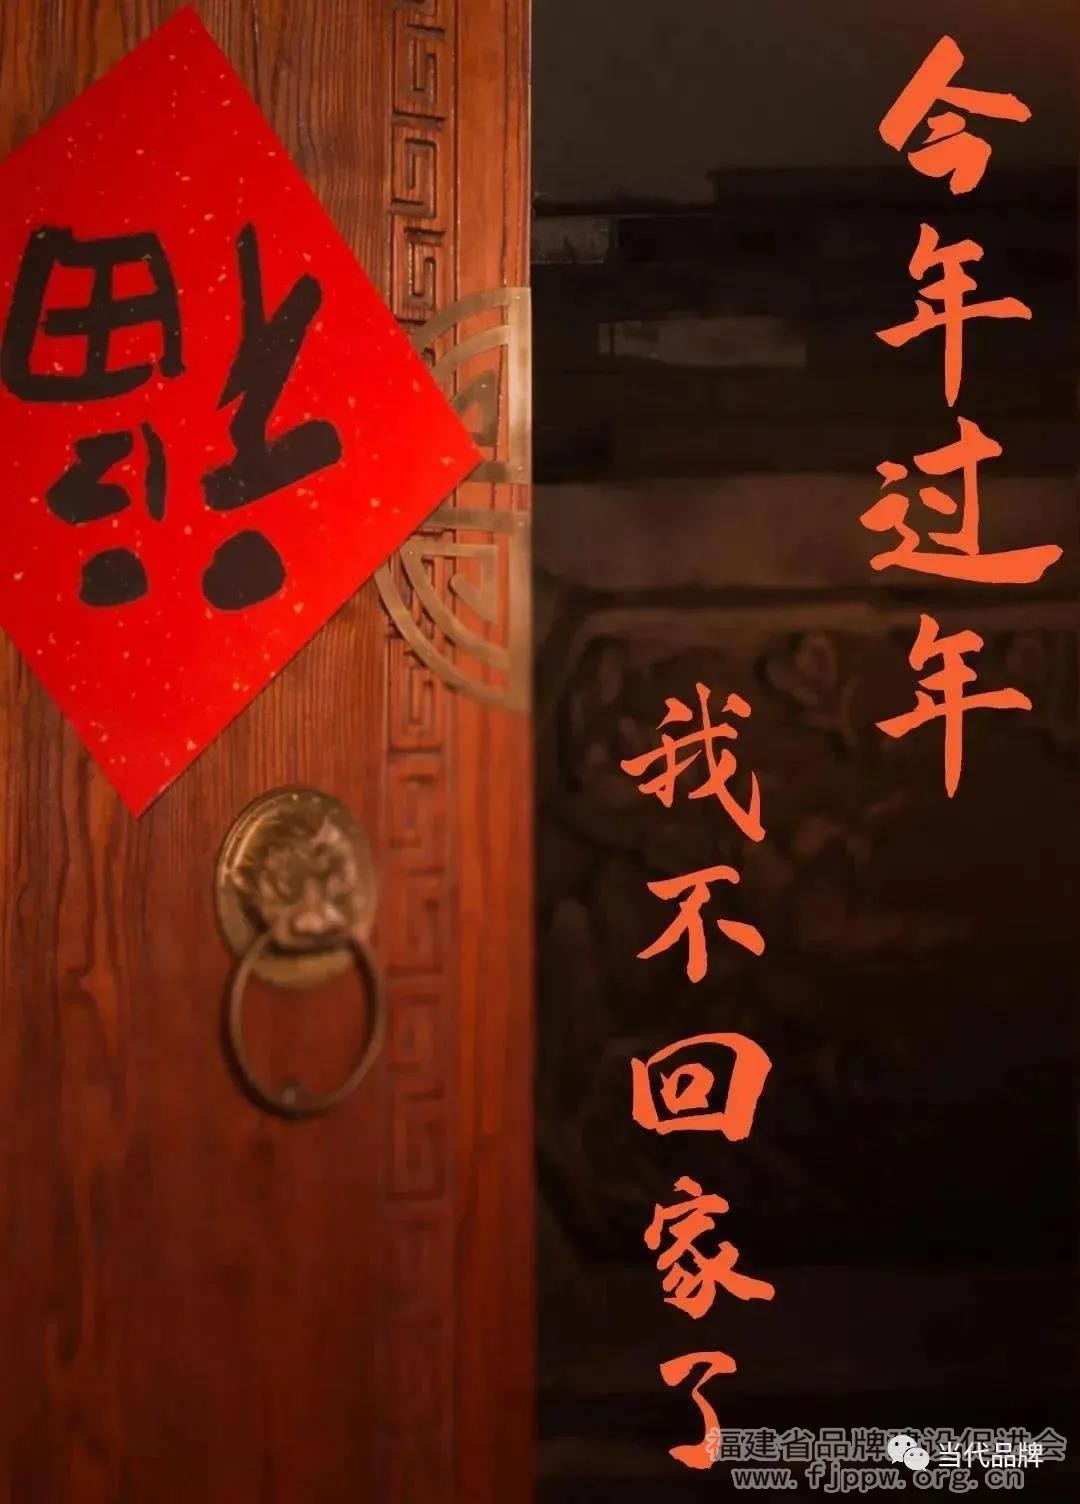 福
今年过年
我不回家了
福建省品牌建设促进会
当代品牌
www.fjppw.org.cn